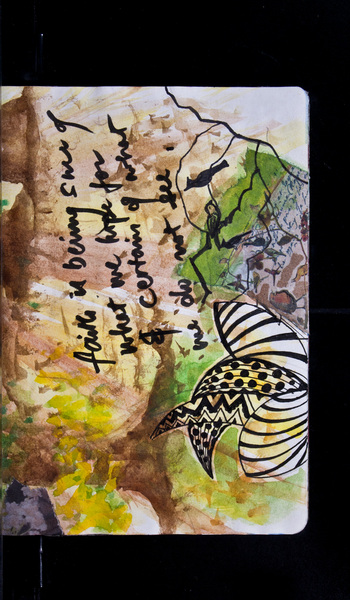 faith is being sure of
what we hope for
& certain of what
we do not see.